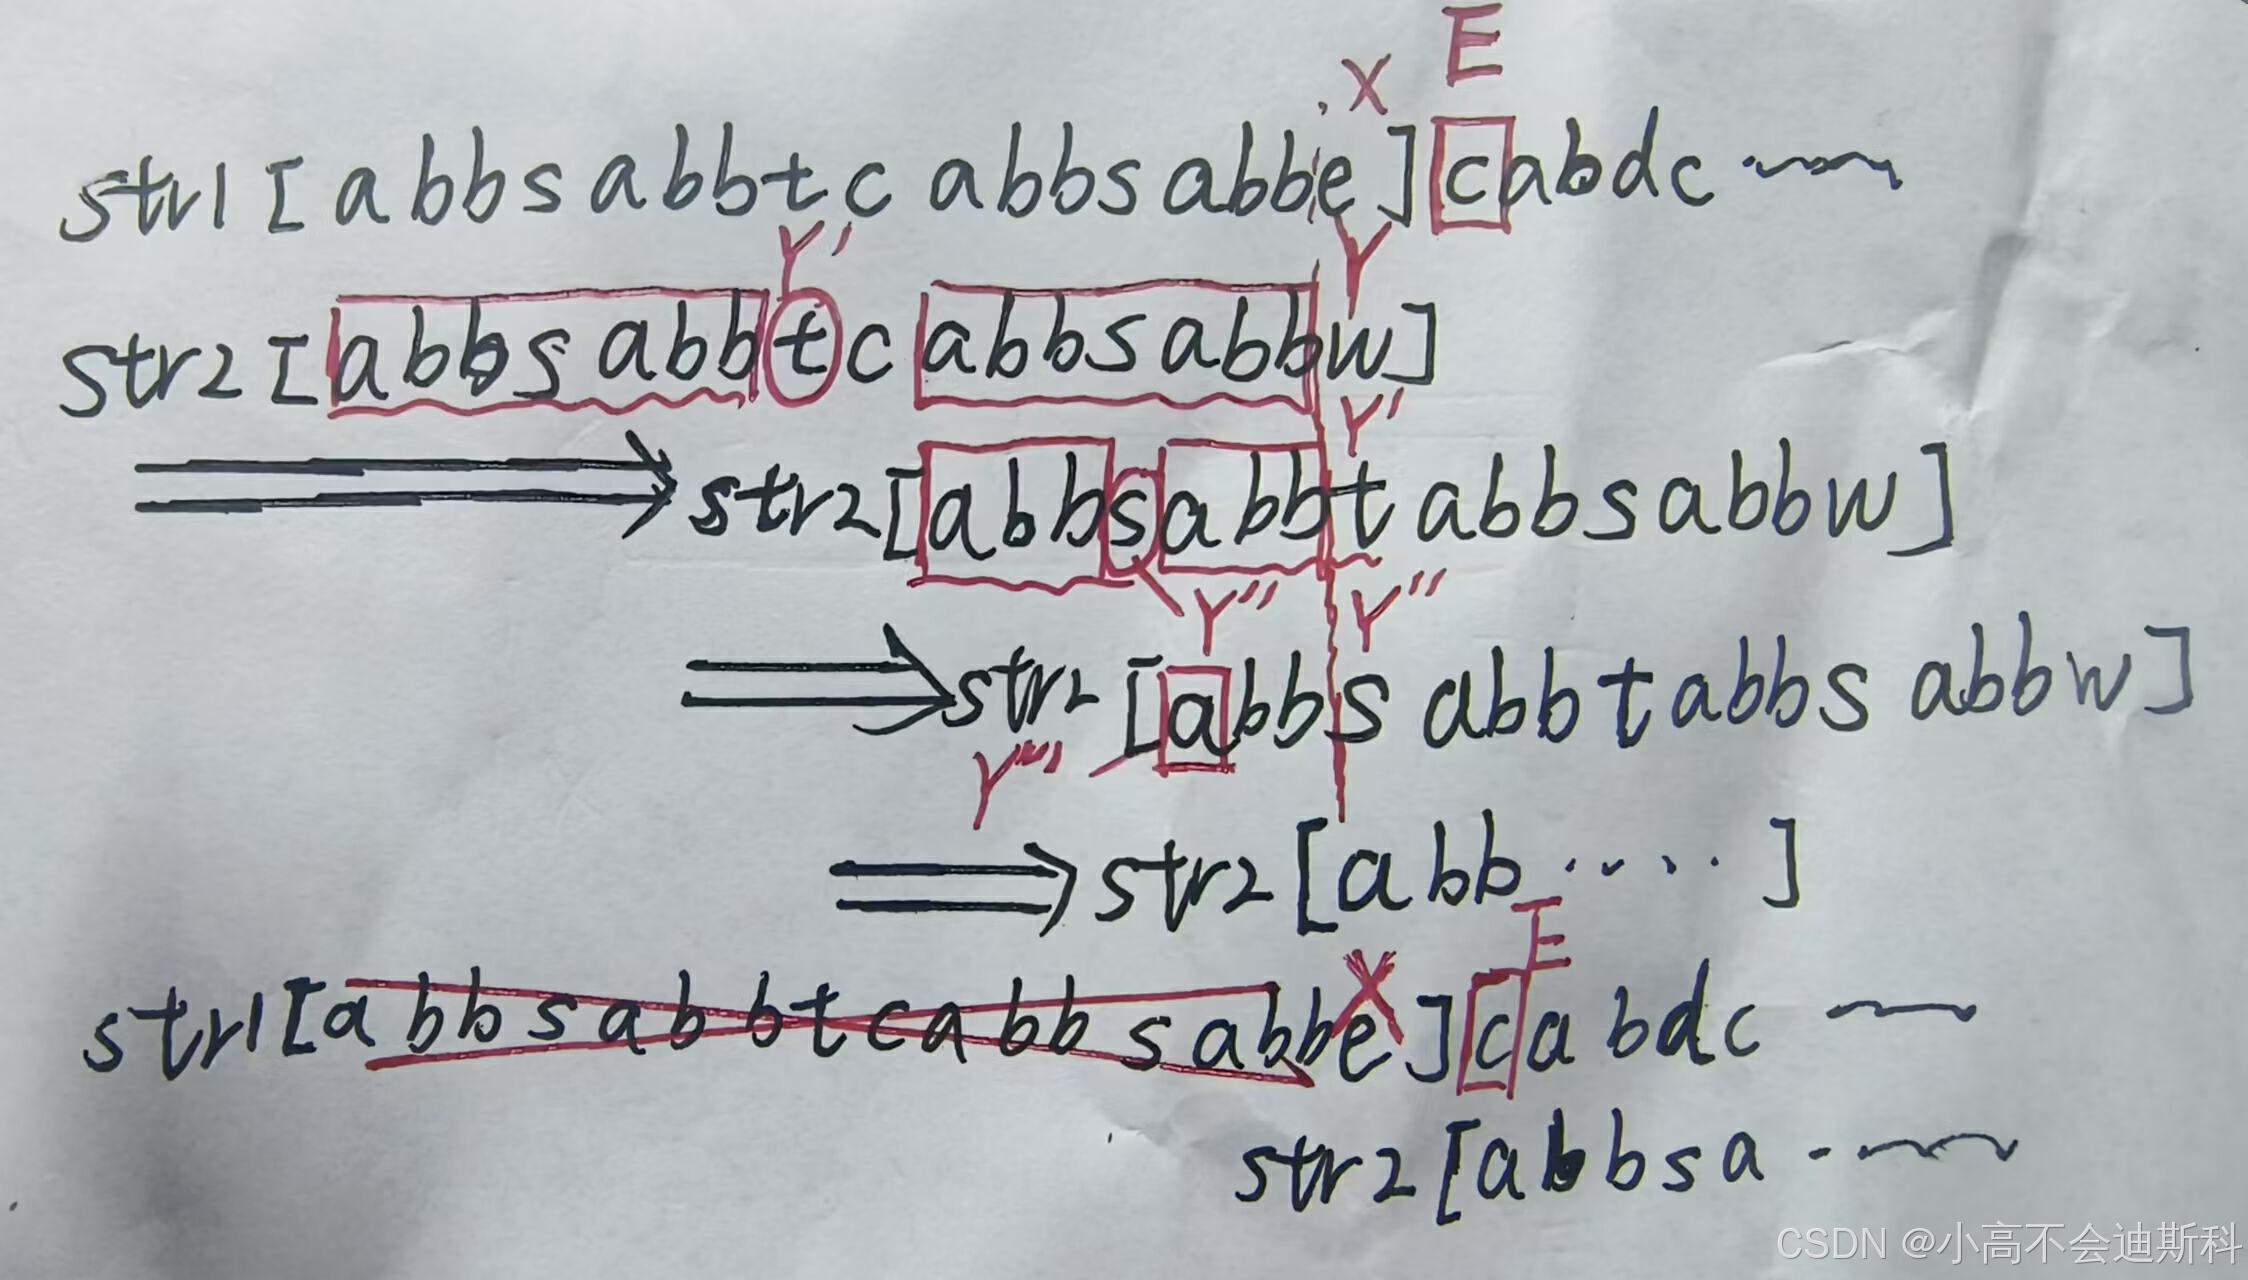 X E
str1 [ a b b s a b b t c a b b s a b b e ] c a b d c
Y' Y
str2 [ a b b s a b b t c a b b s a b b w ]
Y'
str2 [ a b b s a b b t a b b s a b b w ]
Y'' Y''
str2 [ a b b s a b b t a b b s a b b w ]
Y'''
str2 [ a b b ····· ]
E
str1 [ a b b s a b b t c a b b s a b b e ] c a b d c
str2 [ a b b s a
CSDN @小高不会迪斯科